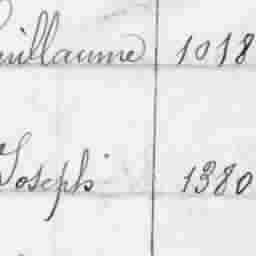 Guillaume 1018
Joseph 1380